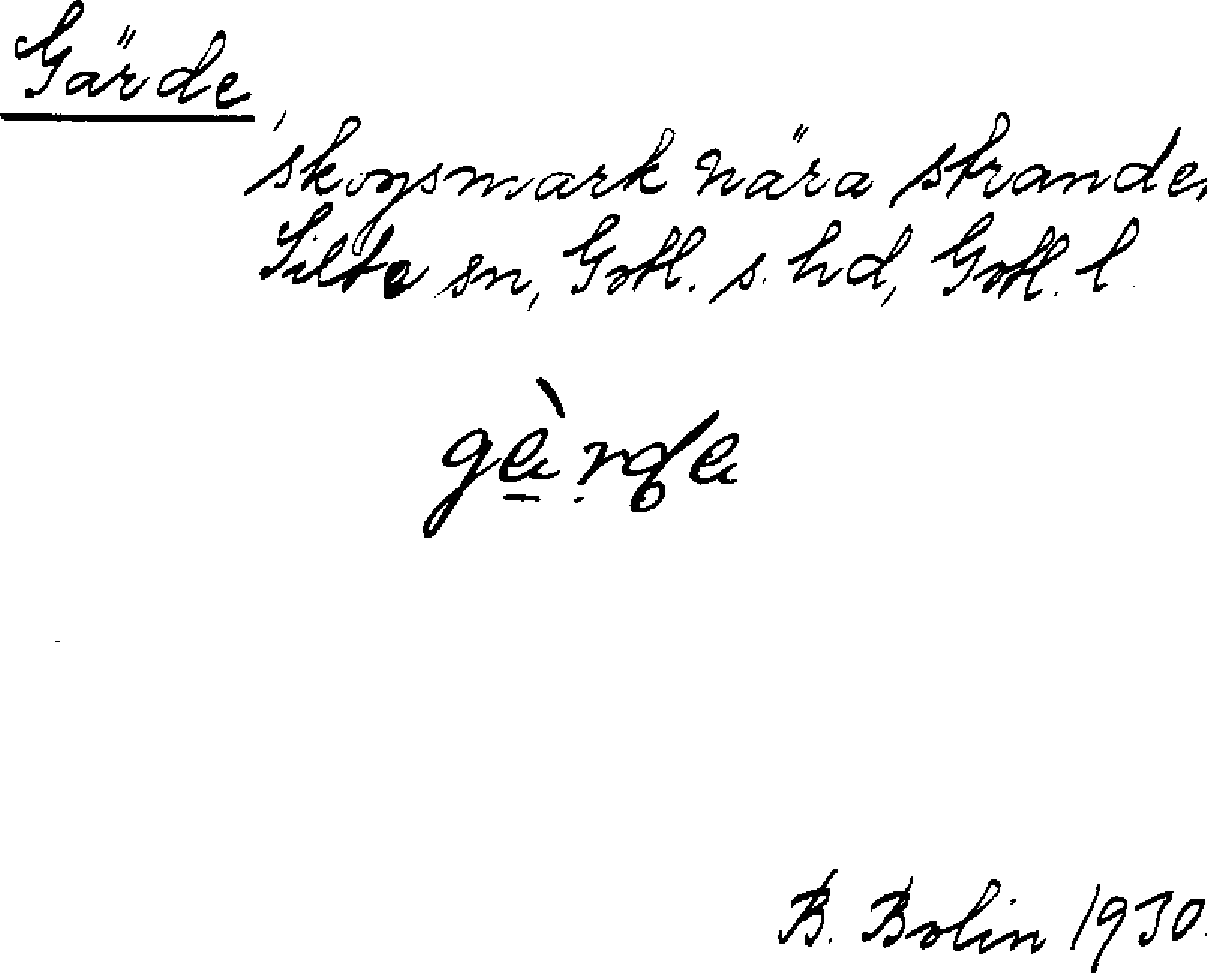 Gärde,
skogsmark nära stranden
Silte sn, Gotl. s. hd, Gotl. l.
gè̱rde
B. Bolin 1930.